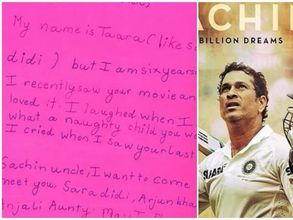 My name is Taara (like s
didi) but I am six years
I recently saw your movie an
loved it. I laughed when I
what a naughty child you w
I cried when I saw your last
Sachin uncle, I want to come
meet you, Sara didi, Arjun bha
njali Aunty.
ACHIN
BILLION DREAMS
SAHARA